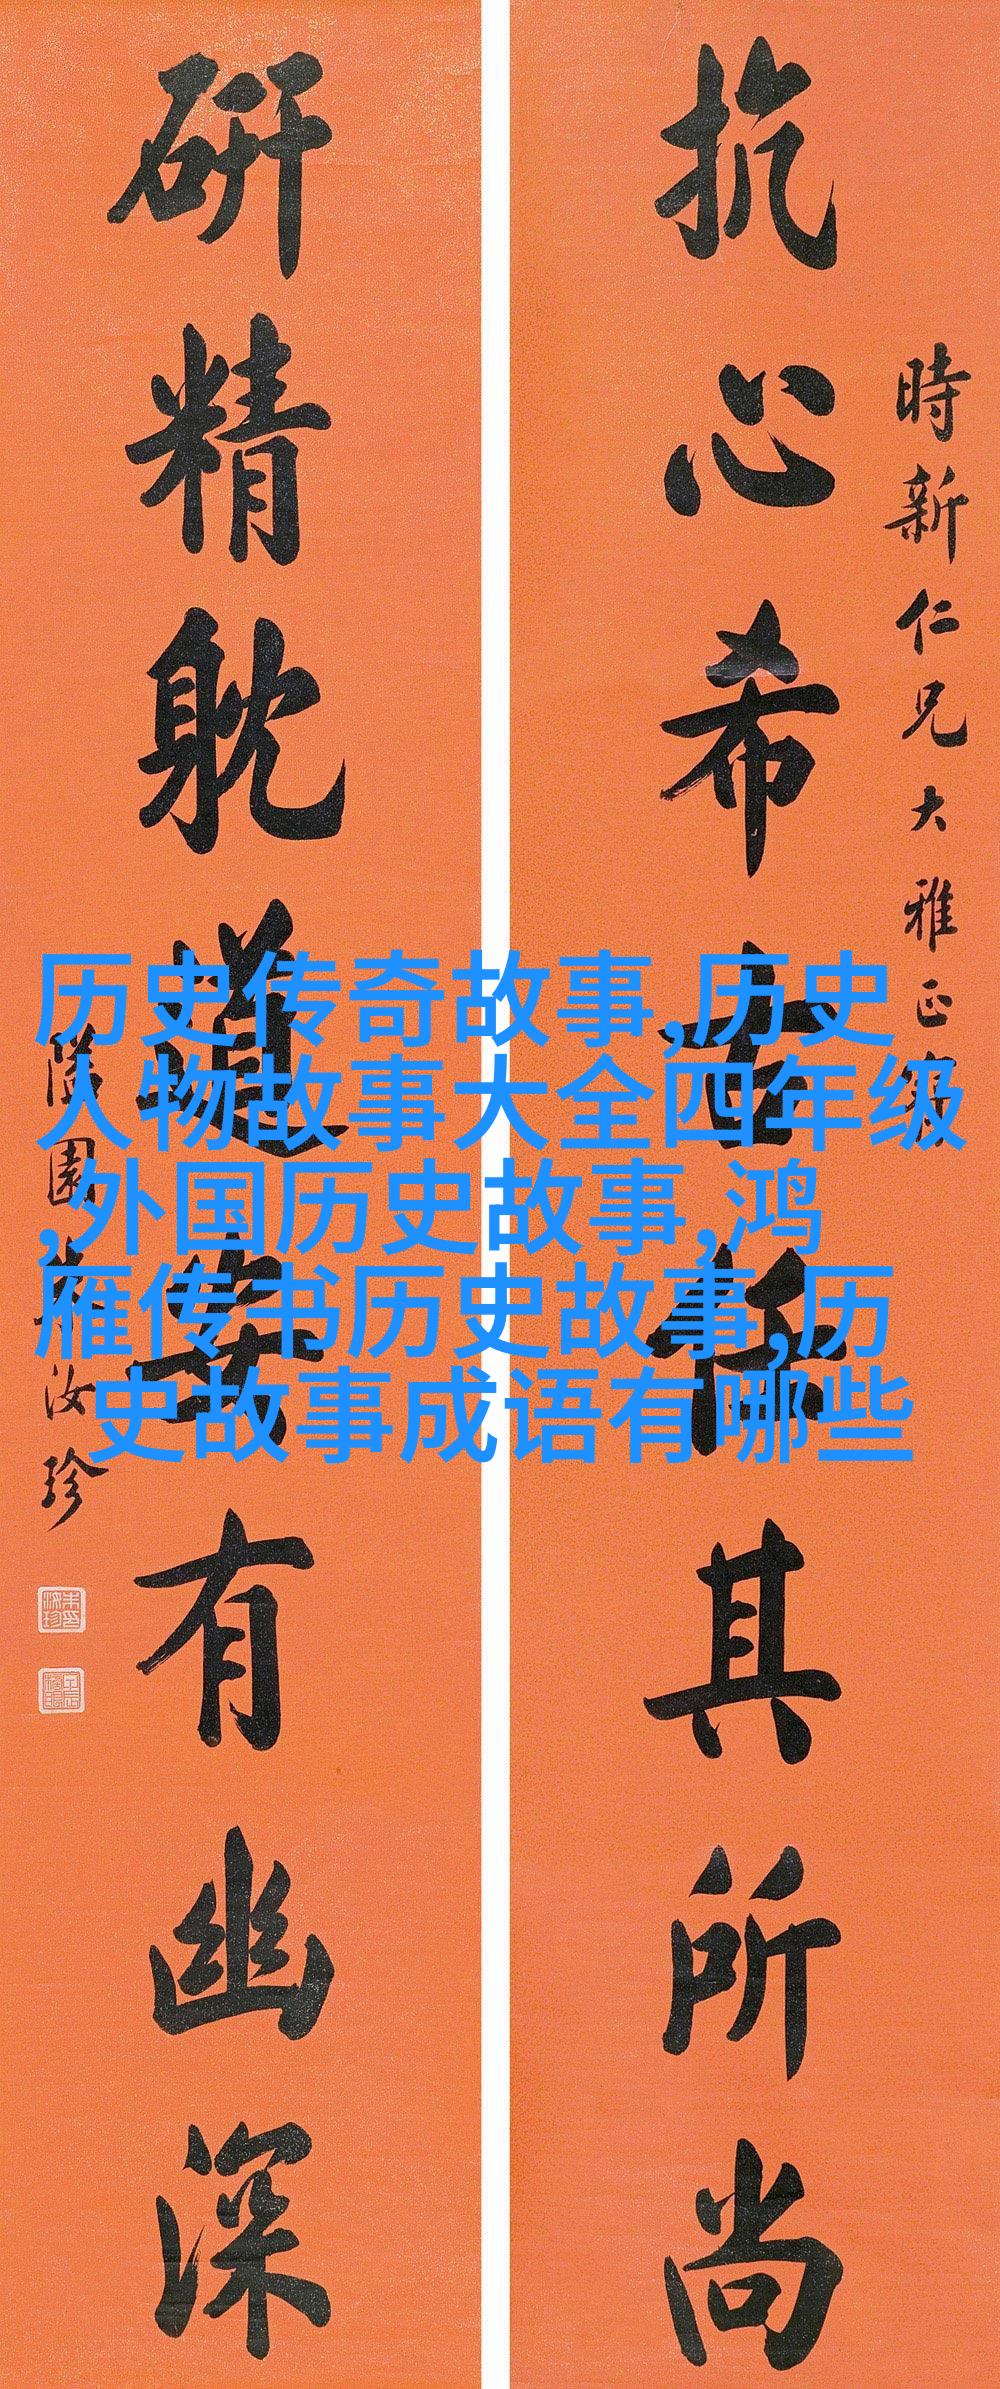 時新仁兄大雅正
抗心希古任其所尚
研精躭道安有幽深
隘園朱汝珍
历史传奇故事,历史
人物故事大全四年级
,外国历史故事,鸿
雁传书历史故事,历
史故事成语有哪些